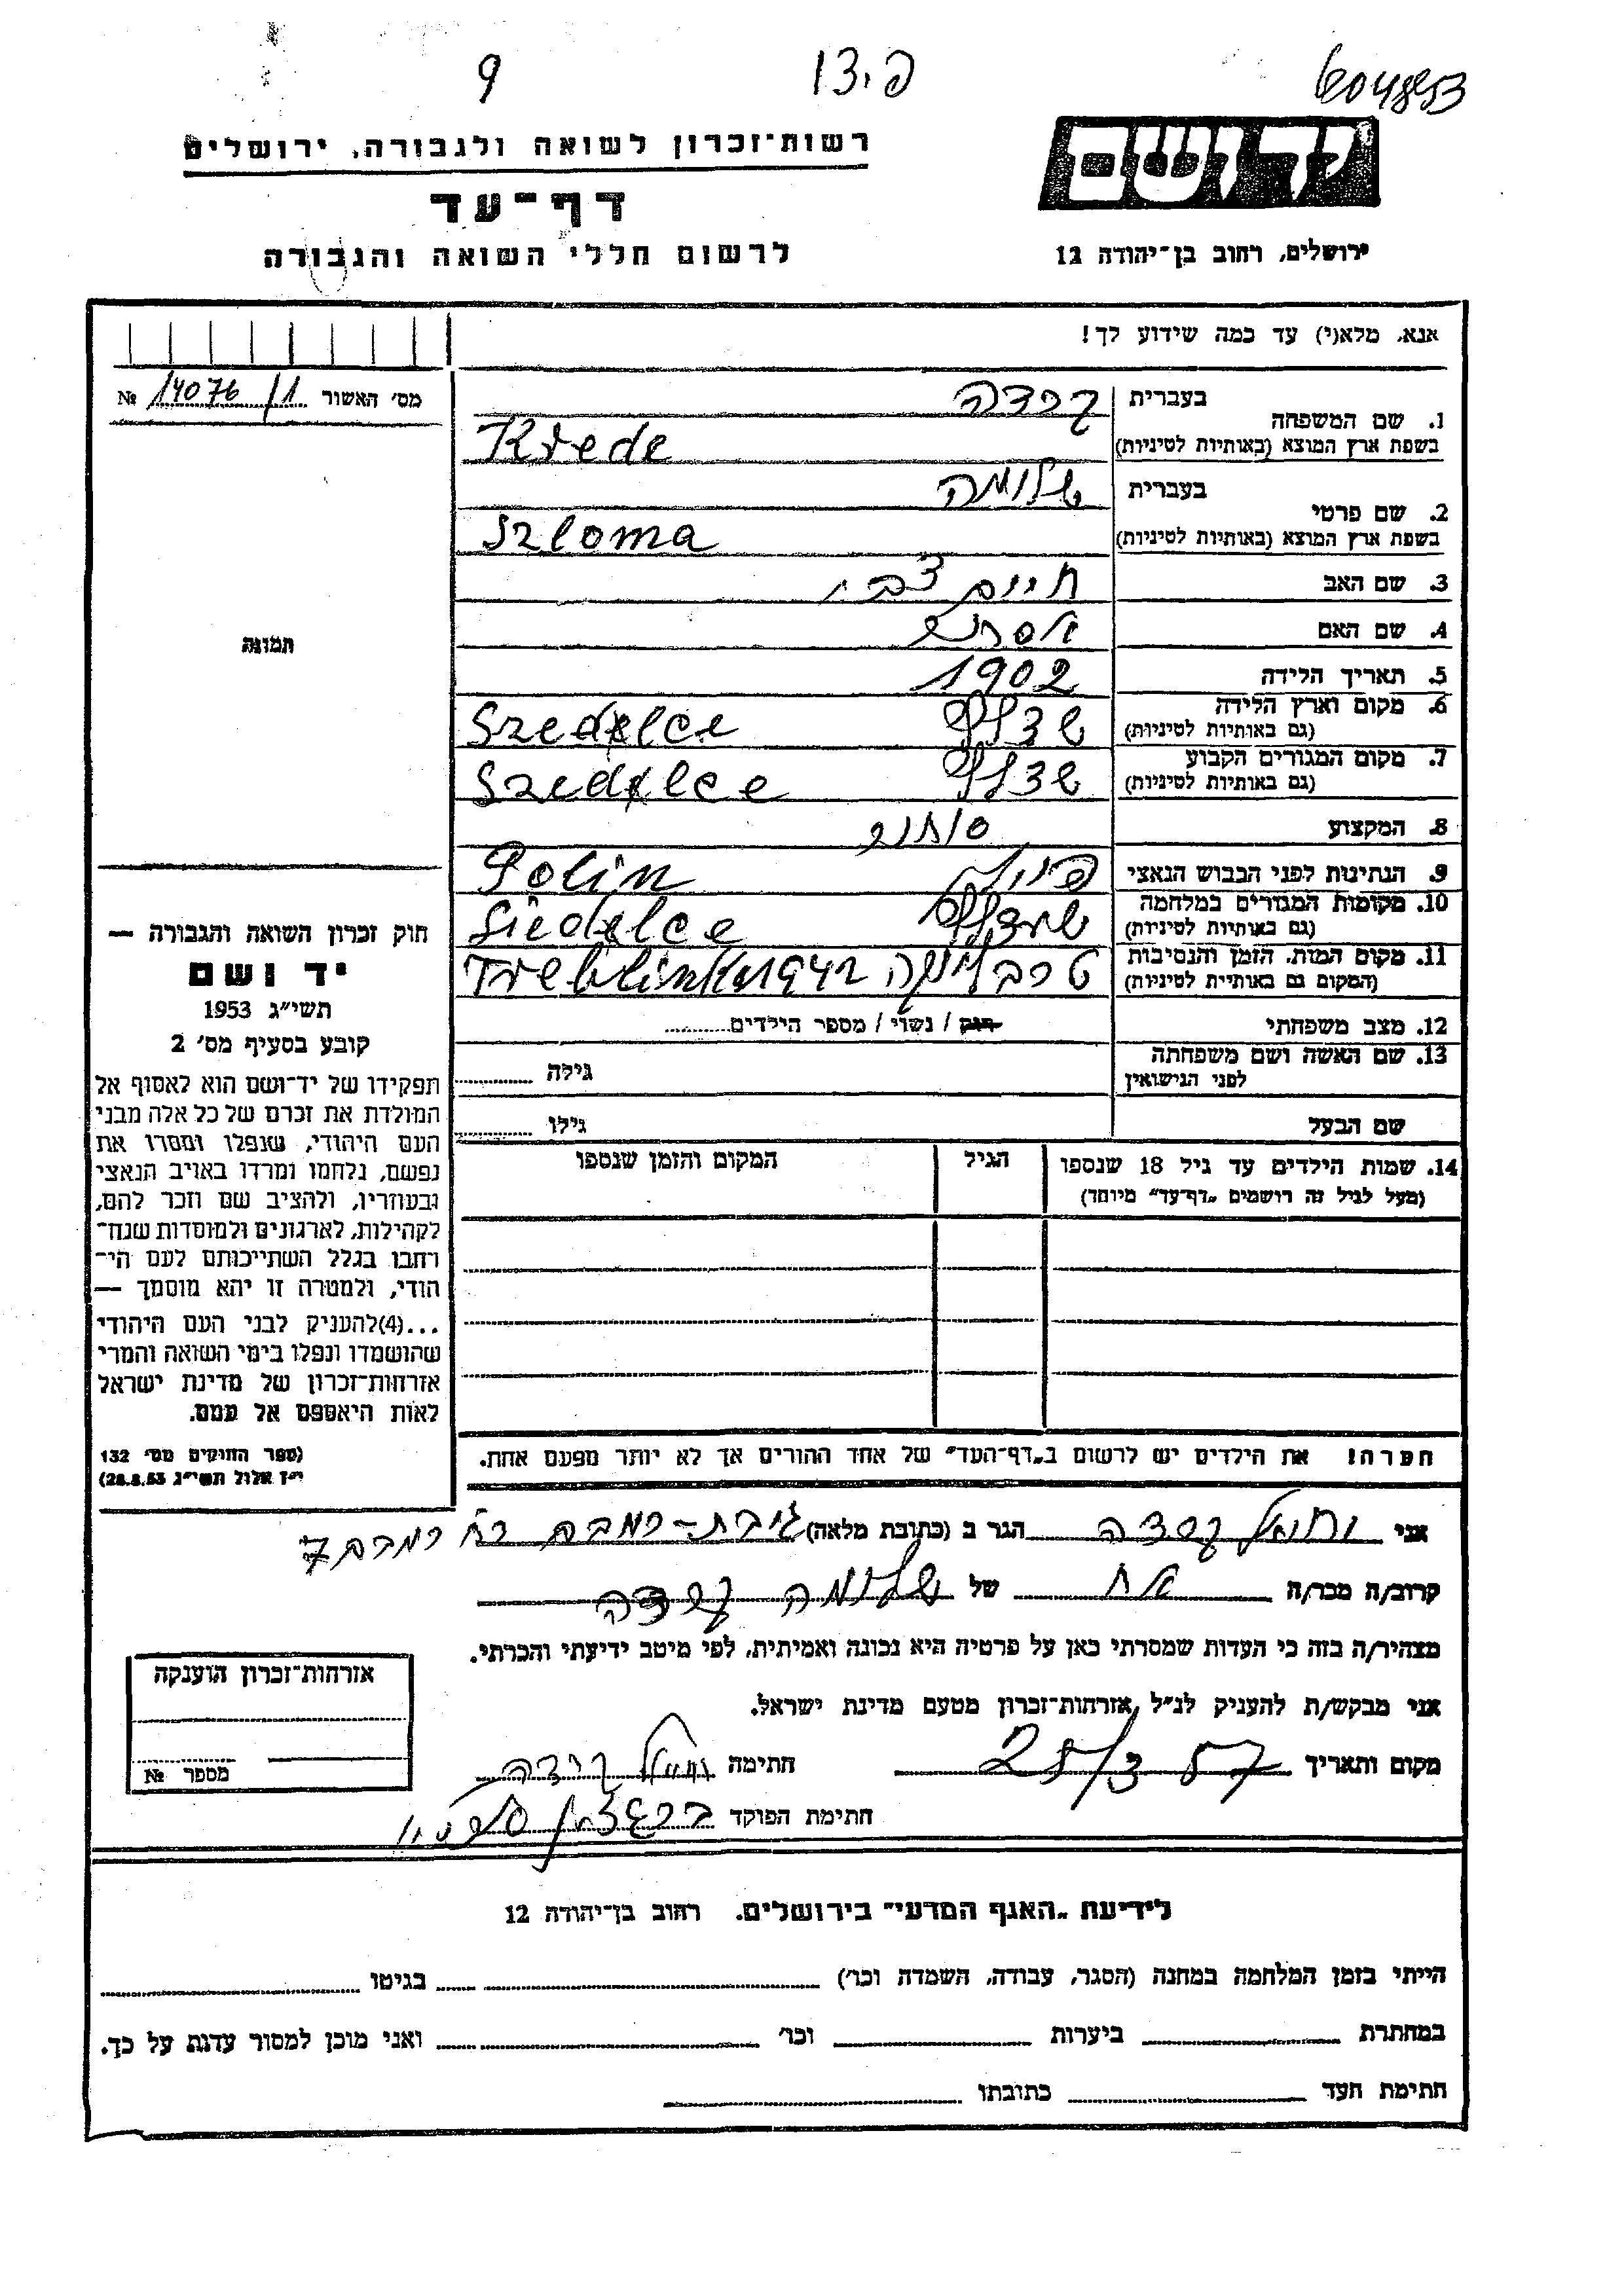 604853
פ.צו
9
יד ושם
ירושלים, רחוב בן־יהודה 12
רשות־זכרון לשואה ולגבורה, ירושלים
דף־עד
לרשום חללי השואה והגבורה
אנא, מלא(י) עד כמה שידוע לך!
מס׳ האשור 14076/1 №
תמונה
1. שם המשפחה
בעברית קרדה
בשפת ארץ המוצא (באותיות לטיניות) Krede
2. שם פרטי
בעברית שלומה
בשפת ארץ המוצא (באותיות לטיניות) Szloma
3. שם האב חיים צבי
4. שם האם
5. תאריך הלידה 1902
6. מקום וארץ הלידה
(גם באותיות לטיניות) Szedelce
7. מקום המגורים הקבוע
(גם באותיות לטיניות) Szedelce
8. המקצוע סוחר
9. הנתינות לפני הכבוש הנאצי פולין Polin
10. מקומות המגורים במלחמה
(גם באותיות לטיניות) Siedelce
11. מקום המות, הזמן והנסיבות
(המקום גם באותיית לטיניות) טרבלינקה 1942 Treblinka
12. מצב משפחתי רוק / נשוי / מספר הילדים
13. שם האשה ושם משפחתה
לפני הנישואין
גילה
שם הבעל גילו
14. שמות הילדים עד גיל 18 שנספו
(מעל לגיל זה רושמים „דף־עד״ מיוחד)
הגיל
המקום והזמן שנספו
הערה! את הילדים יש לרשום ב„דף־העד״ של אחד ההורים אך לא יותר מפעם אחת.
חוק זכרון השואה והגבורה —
יד ושם
תשי״ג 1953
קובע בסעיף מס׳ 2
תפקידו של יד־ושם הוא לאסוף אל
המולדת את זכרם של כל אלה מבני
העם היהודי, שנפלו ומסרו את
נפשם, נלחמו ומרדו באויב הנאצי
ובעוזריו, ולהציב שם וזכר להם,
לקהילות, לארגונים ולמוסדות שנח־
רבו בגלל השתייכותם לעם הי־
הודי, ולמטרה זו יהא מוסמך —
...(4)להעניק לבני העם היהודי
שהושמדו ונפלו בימי השואה והמרי
אזרחות־זכרון של מדינת ישראל
לאות היאספם אל עמם.
(ספר החוקים מס׳ 132
י״ז אלול תשי״ג 28.8.53)
אני קרדה הגר ב (כתובת מלאה) גבעת־רמבם רח רמבם 7
קרוב/ה מכר/ה אח של שלומה קרדה
מצהיר/ה בזה כי העדות שמסרתי כאן על פרטיה היא נכונה ואמיתית, לפי מיטב ידיעתי והכרתי.
אני מבקש/ת להעניק לנ״ל אזרחות־זכרון מטעם מדינת ישראל.
מקום ותאריך
חתימה
חתימת הפוקד
אזרחות־זכרון הוענקה
מספר №
לידיעת „האגף המדעי״ בירושלים, רחוב בן־יהודה 12
הייתי בזמן המלחמה במחנה (הסגר, עבודה, השמדה וכו׳) בגיטו
במחתרת ביערות וכו׳ ואני מוכן למסור עדות על כך.
חתימת העד כתובתו